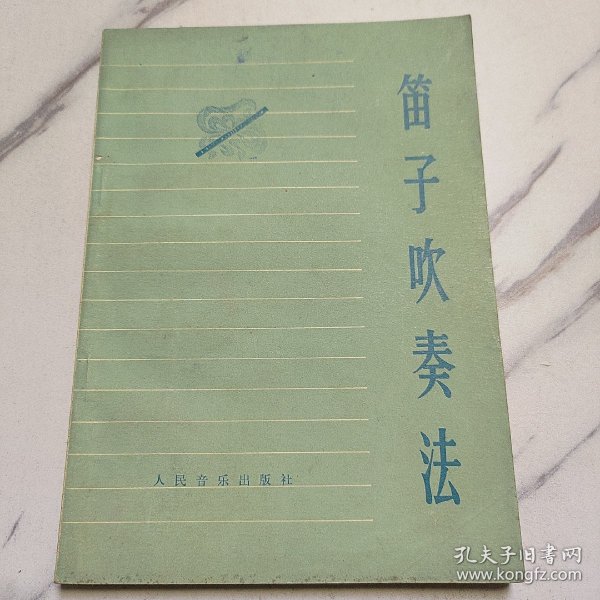 笛子吹奏法
人民音乐出版社
孔夫子旧书网
www.kongfz.com